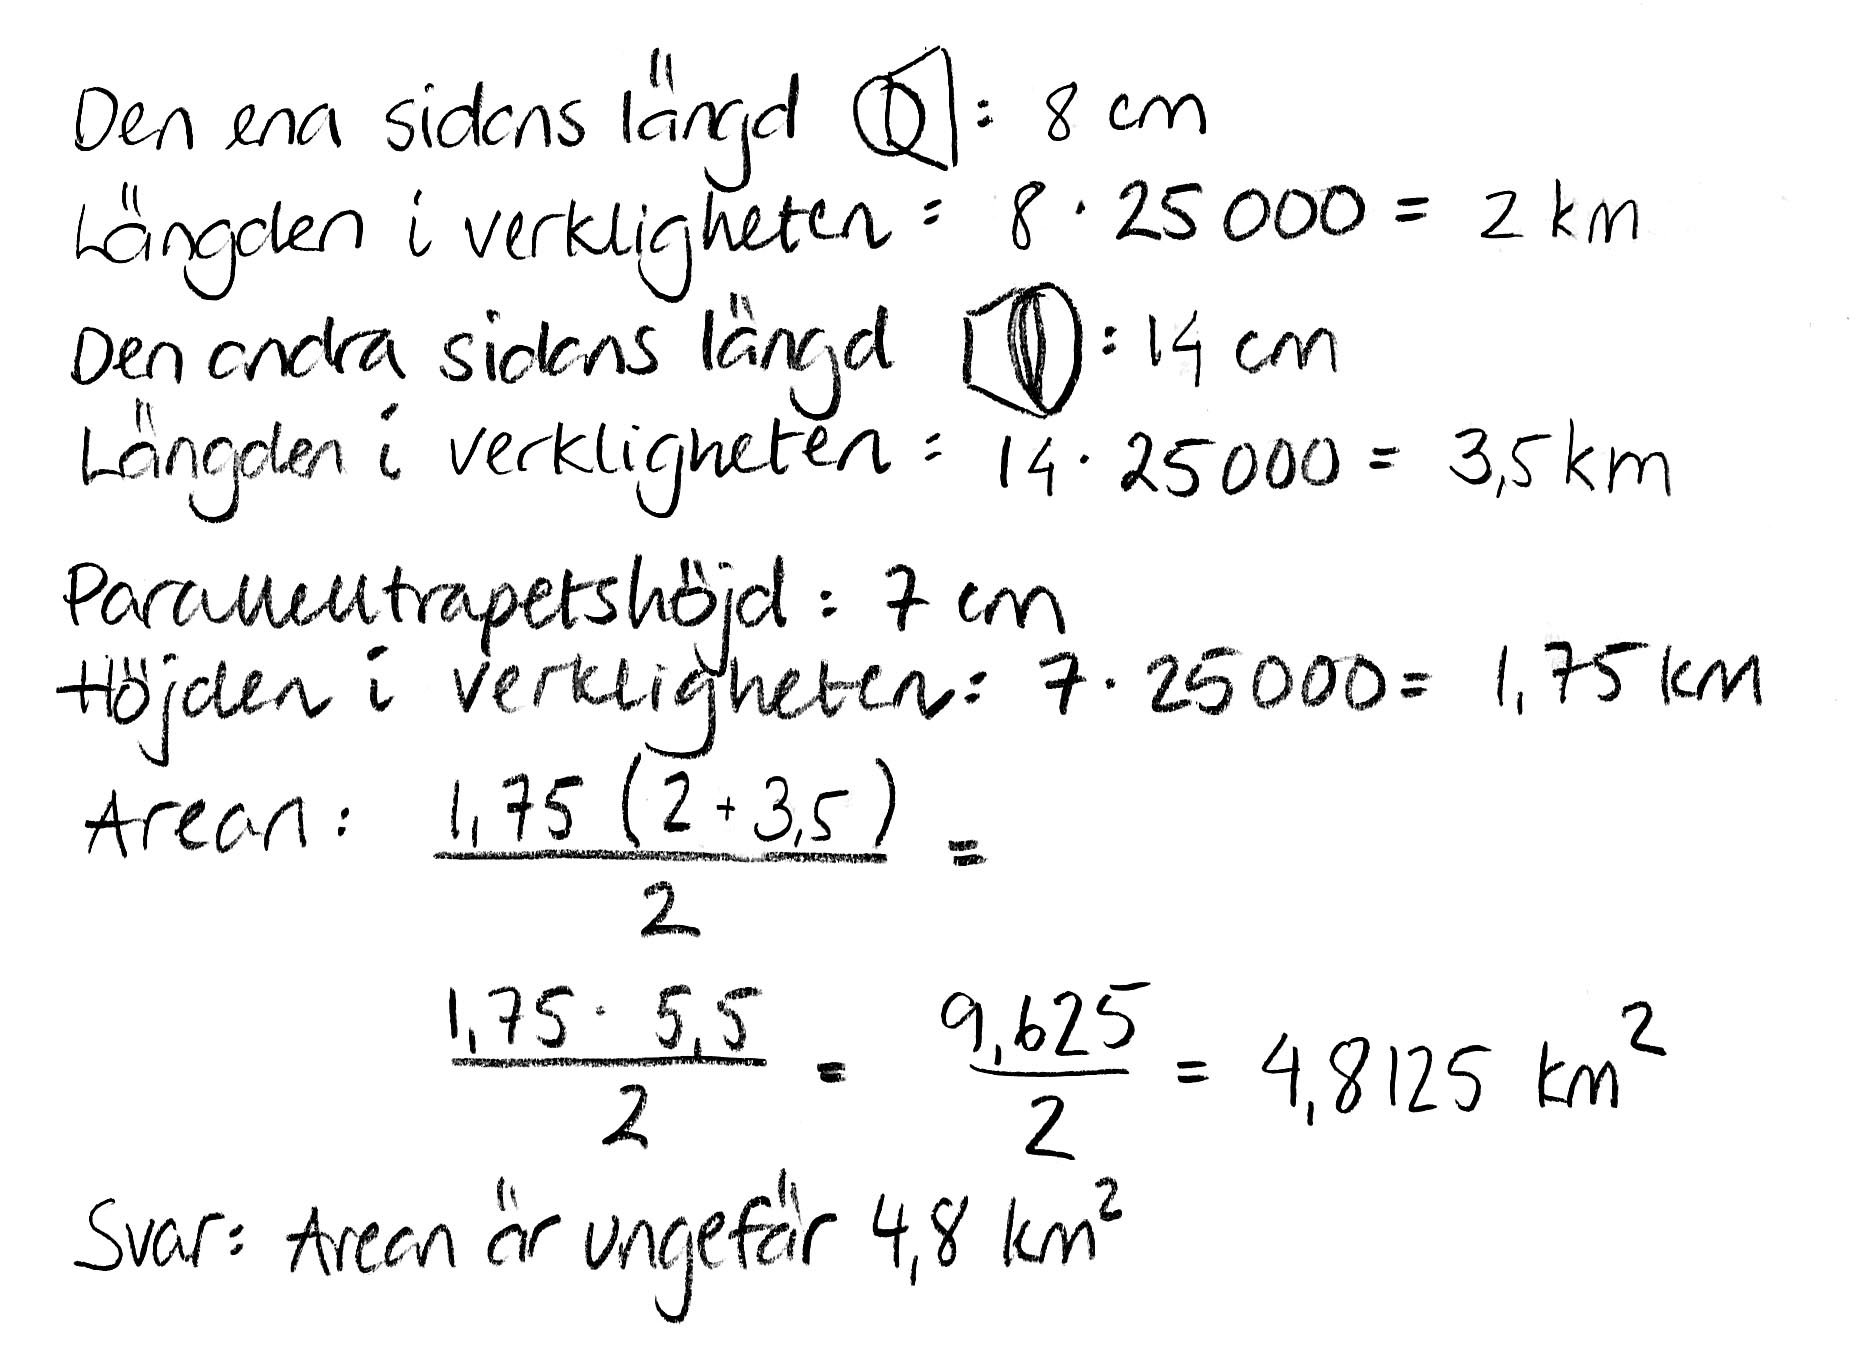 Den ena sidans längd : 8 cm
Längden i verkligheten = 8 · 25 000 = 2 km
Den andra sidans längd : 14 cm
Längden i verkligheten = 14 · 25 000 = 3,5 km
Parallelltrapetshöjd : 7 cm
Höjden i verkligheten: 7 · 25 000 = 1,75 km
Arean: \frac{1,75 (2 + 3,5)}{2} =
\frac{1,75 · 5,5}{2} = \frac{9,625}{2} = 4,8125 km²
Svar: Arean är ungefär 4,8 km²